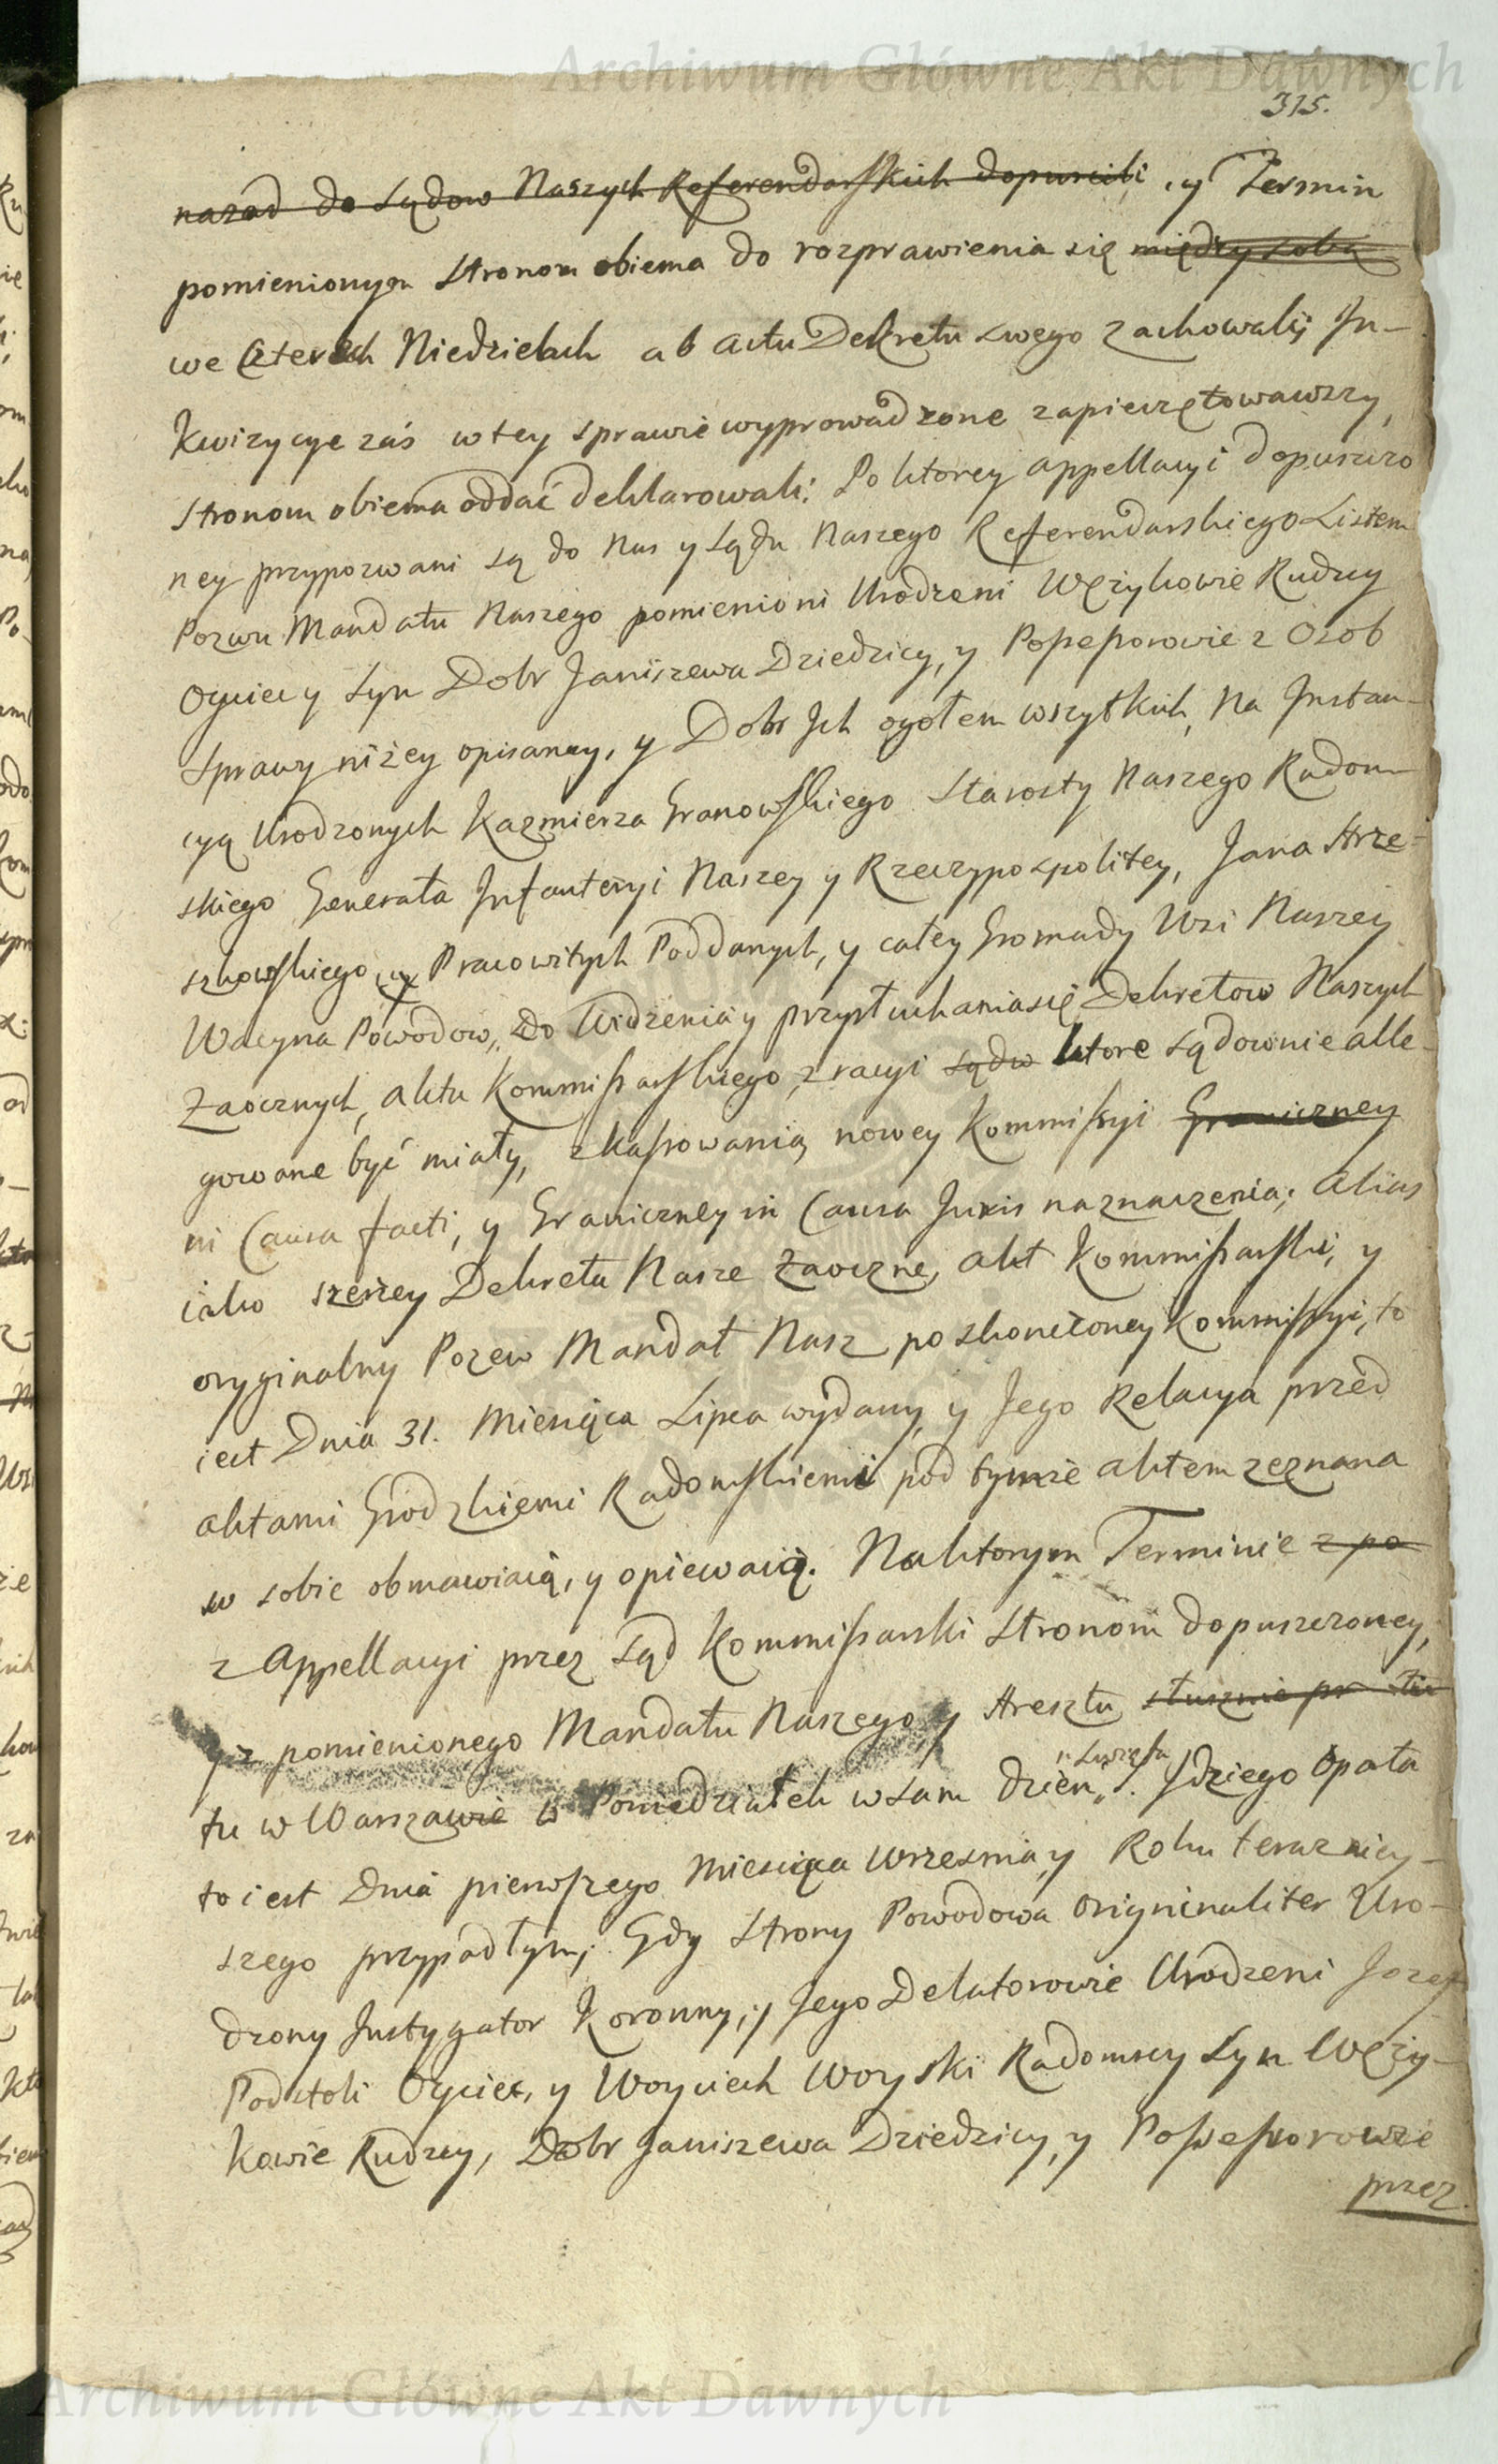 Archiwum Główne Akt Dawnych
315.
nazad do Sądow Naszych Referendarskich dopuscili, y Termin
pomienionym Stronom obiema do rozprawienia się między sobą
we Czterech Niedzielach ab actu Dekretu swego zachowali; In-
kwizycye zaś w tey sprawie wyprowadzone zapieczętowawszy,
Stronom obiema oddać deklarowali: Po ktorey appellacyi dopuszczo
ney przypozwani są do Nas y Sądu Naszego Referendarskiego Listem
Pozwu Mandatu Naszego pomienioni Urodzeni Wężykowie Rudzcy
Oyciec y Syn Dobr Janiszewa Dziedzicy, y Possessorowie z Osob
Sprawy niżey opisaney, y Dobr Ich ogołem wszytkich, Na Instan-
cyą Urodzonych Kazmierza Granowskiego Starosty Naszego Radom-
skiego Generała Infanteryi Naszey y Rzeczypospolitey, Jana Strze-
szkowskiego, y Pracowitych Poddanych, y całey Gromady Wsi Naszey
Wacyna Powodow, Do Widzenia y przysłuchania się Dekretow Naszych
Zaocznych, aktu Kommissarskiego, z racyi sądw ktore sądownie alle-
gowane być miały, zkassowania, nowey Kommissyi Graniczney
in Causa facti, y Graniczney in Causa Juris naznaczenia; alias
iako szerzey Dekreta Nasze Zaoczne, akt Kommissarski, y
oryginalny Pozew Mandat Nasz po skonczoney Kommissyi, to
iest Dnia 31. Miesiąca Lipca wydany, y Jego Relacya przed
aktami Grodzkiemi Radomskiemi pod tymże aktem zeznana
w sobie obmawiaią, y opiewaią. Na ktorym Terminie z po
z Appellacyi przez Sąd Kommissarski Stronom dopuszczoney,
y z pomienionego Mandatu Naszego y Aresztu słusznie
tu w Warszawie w Poniedziałek w sam dzień Swięta S. Idziego Opata
to iest Dnia pierwszego Miesiąca Wrzesnia, y Roku teraznicy-
szego przypadłym; Gdy Strony Powodowa originaliter Uro-
dzony Instygator Koronny, y Jego Delatorowie Urodzeni Jozef
Podstoli Oyciec, y Woyciech Woyski Radomscy Syn Węży-
kowie Rudzcy, Dobr Janiszewa Dziedzicy, y Possessorowie
przez
Archiwum Główne Akt Dawnych